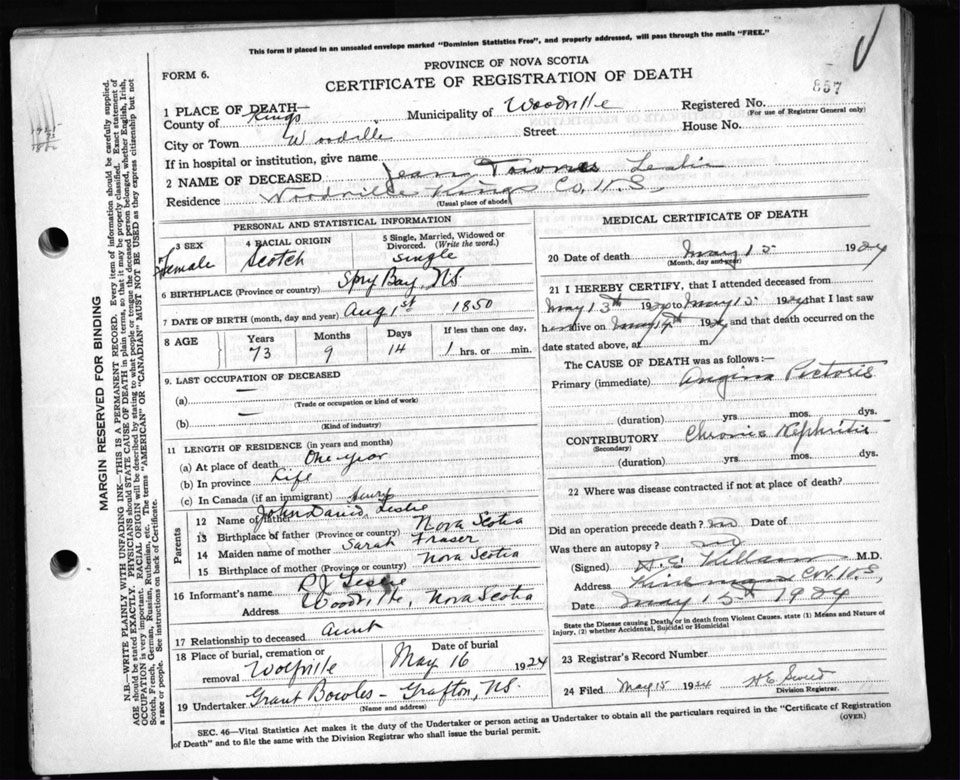 This form if placed in an unsealed envelope marked "Dominion Statistics Free", and properly addressed, will pass through the mails "FREE."
PROVINCE OF NOVA SCOTIA
FORM 6.
CERTIFICATE OF REGISTRATION OF DEATH
857
1 PLACE OF DEATH—
County of Kings Municipality of Woodville Registered No.
(For use of Registrar General only)
City or Town Woodville Street House No.
If in hospital or institution, give name
2 NAME OF DECEASED Jean Leslie
Residence Woodville Kings Co, N.S.
(Usual place of abode)
MARGIN RESERVED FOR BINDING
N.B.—WRITE PLAINLY WITH UNFADING INK—THIS IS A PERMANENT RECORD. Every item of information should be carefully supplied.
AGE should be stated EXACTLY. PHYSICIANS should STATE CAUSE OF DEATH in plain terms, so that it may be properly classified. Exact statement of
OCCUPATION is very important. RACIAL ORIGIN will be described by stating to what people or tongue the deceased person belonged, whether English, Irish,
Scotch, French, German, Russian, Ruthenian, etc. The terms "AMERICAN" OR "CANADIAN" MUST NOT BE USED as they express citizenship but not
a race or people. See instructions on back of Certificate.
PERSONAL AND STATISTICAL INFORMATION
3 SEX
Female
4 RACIAL ORIGIN
Scotch
5 Single, Married, Widowed or
Divorced. (Write the word.)
single
6 BIRTHPLACE (Province or country) Spry Bay, N.S.
7 DATE OF BIRTH (month, day and year) Aug 1st 1850
8 AGE Years Months Days If less than one day,
73 9 14 hrs. or min.
9. LAST OCCUPATION OF DECEASED
(a) —
(Trade or occupation or kind of work)
(b) —
(Kind of industry)
11 LENGTH OF RESIDENCE (in years and months)
(a) At place of death One year
(b) In province Life
(c) In Canada (if an immigrant)
Parents
12 Name of father John David Leslie
13 Birthplace of father (Province or country) Nova Scotia
14 Maiden name of mother Sarah Fraser
15 Birthplace of mother (Province or country) Nova Scotia
16 Informant's name R J Leslie
Address Woodville, Nova Scotia
17 Relationship to deceased Aunt
18 Place of burial, cremation or Date of burial
removal Wolfville May 16 1924
19 Undertaker Grant Bowles - Grafton, N.S.
(Name and address)
MEDICAL CERTIFICATE OF DEATH
20 Date of death May 15 1924
(Month, day and year)
21 I HEREBY CERTIFY, that I attended deceased from
May 13th 1924 to May 15 1924 that I last saw
her alive on May 14th 1924 and that death occurred on the
date stated above, at m
The CAUSE OF DEATH was as follows:—
Primary (immediate) Angina Pectoris
(duration) yrs. mos. dys.
CONTRIBUTORY Chronic Nephritis
(Secondary)
(duration) yrs. mos. dys.
22 Where was disease contracted if not at place of death?
Did an operation precede death? no Date of
Was there an autopsy?
(Signed) M.D.
Address
Date May 15th 1924
State the Disease causing Death, or in death from Violent Causes, state (1) Means and Nature of
Injury, (2) whether Accidental, Suicidal or Homicidal
23 Registrar's Record Number
24 Filed May 15 1924
Division Registrar.
SEC. 46—Vital Statistics Act makes it the duty of the Undertaker or person acting as Undertaker to obtain all the particulars required in the "Certificate of Registration
of Death" and to file the same with the Division Registrar who shall issue the burial permit. (OVER)